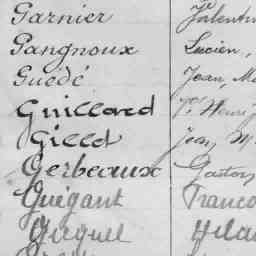 Garnier Valentin
Gangnoux Lucien,
Guédé Jean, M
Guillard Henri
Gillot Jean, M
Gerbeaux Gaston,
Guégant Franco
Guguel Hila